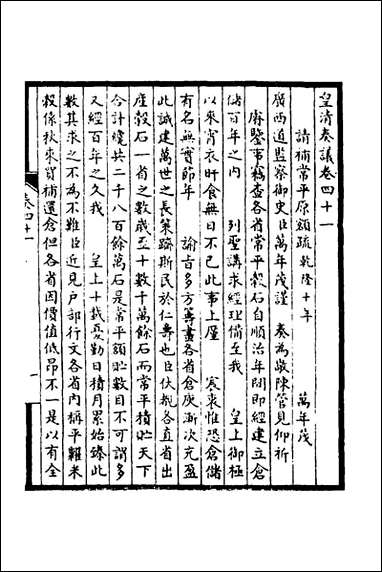 皇清奏議卷四十一
請補常平原額疏乾隆十年 萬年茂
廣西道監察御史臣萬年茂謹 奏為敬陳管見仰祈
睿鑒事竊查各省常平穀石自順治年間即經建立倉
儲百年之內 列聖講求經理備至我 皇上御極
以來宵衣旰食無日不已此事上廑 宸衷惟恐倉儲
有名無實節年 諭旨多方籌畫各省倉庾漸次充盈
此誠建萬世之長策躋斯民於仁壽也臣伏覩各直省出
產穀石一省之數歲至十數千萬餘石而常平積貯天下
合計纔共二千八百餘萬石是常平額貯數目不可謂多
又經百年之久我 皇上十載憂勤日積月累始臻此
數其求之不為不難臣近見戶部行文各省內稱平糶米
穀係秋來買補還倉但各省因價值低昂不一是以有全
卷四十一
一